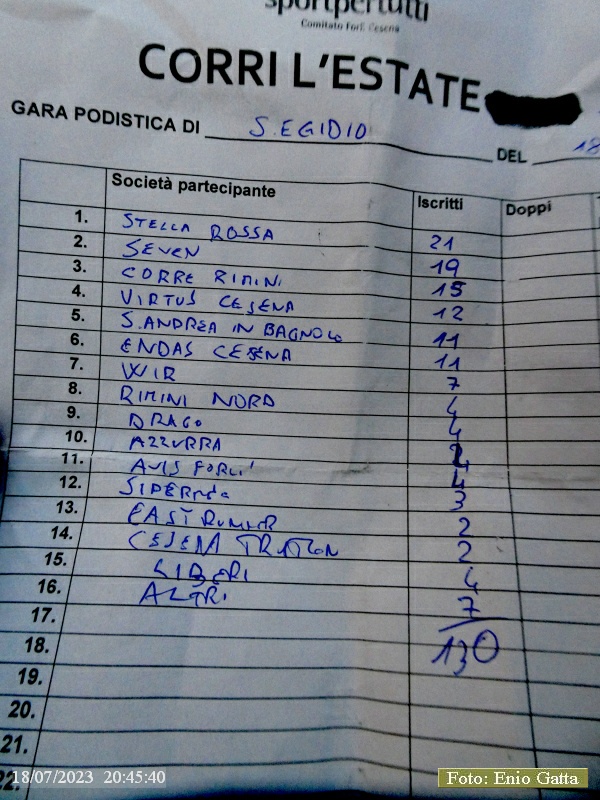 sportpertutti
Comitato Forlì Cesena
CORRI L'ESTATE
GARA PODISTICA DI S. EGIDIO DEL 18
Società partecipante Iscritti Doppi
1. STELLA ROSSA 21
2. SEVEN 19
3. CORRE RIMINI 15
4. VIRTUS CESENA 12
5. S. ANDREA IN BAGNOLO 11
6. ENDAS CESENA 11
7. WIR 7
8. RIMINI NORD 4
9. DRAGO 4
10. AZZURRA 4
11. AVIS FORLI' 4
12. 3
13. EAST RUNNER 2
14. CESENA TRIATLON 2
15. LIBERI 4
16. ALTRI 7
17. 130
18.
19.
20.
21.
22.
18/07/2023 20:45:40
Foto: Enio Gatta